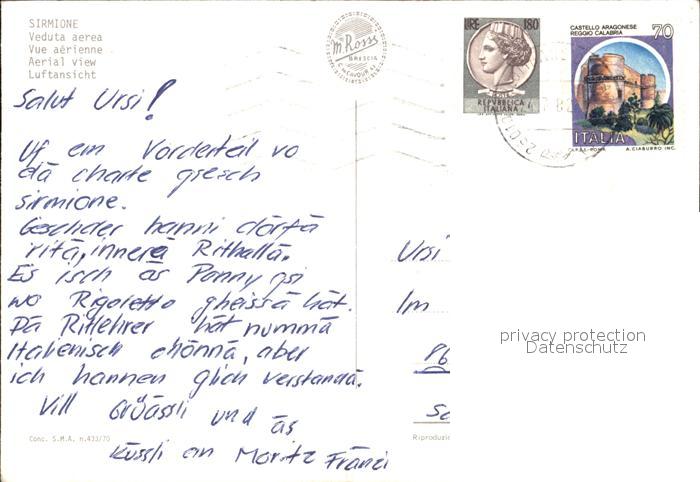 SIRMIONE
Veduta aerea
Vue aérienne
Aerial view
Luftansicht
m. Rossi
BRESCIA
LIRE 180
REPVBBLICA
ITALIANA
CASTELLO ARAGONESE
REGGIO CALABRIA
70
ITALIA
I.P.Z.S. ROMA
A. CIABURRO INC.
Salut Ursi!
Uf em Vorderteil vo
dä charte gsesch
sirmione.
Geschder hanni dörfä
ritä, innerä Rithallä.
Es isch äs Ponny gsi
wo Rigoletto gheissä hät.
Dä Ritlehrer hät nummä
Italienisch chönnä, aber
ich han nen glich verstandä.
Vill Grüässli und äs
küssli an Moritz Fränzi
Ursi
Im
Pb
Sc
privacy protection
Datenschutz
Conc. S.M.A. n.433/70
Riproduzio